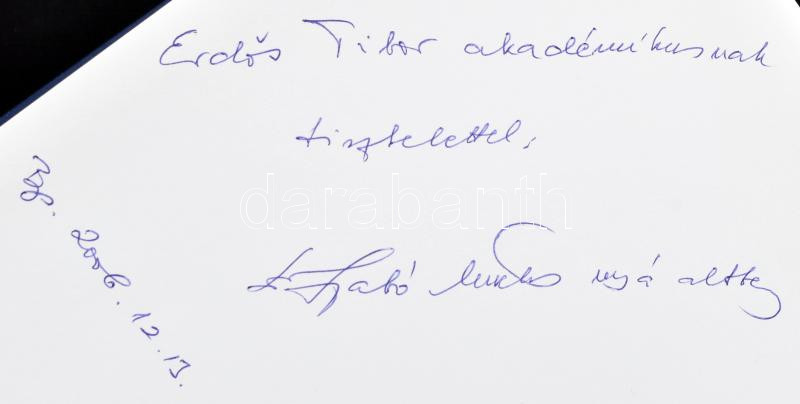 Erdős Tibor akadémikusnak
tisztelettel:
Dr. Szabó Miklós nyá altbgy
Bp. 2006. 12. 13.
darabanth